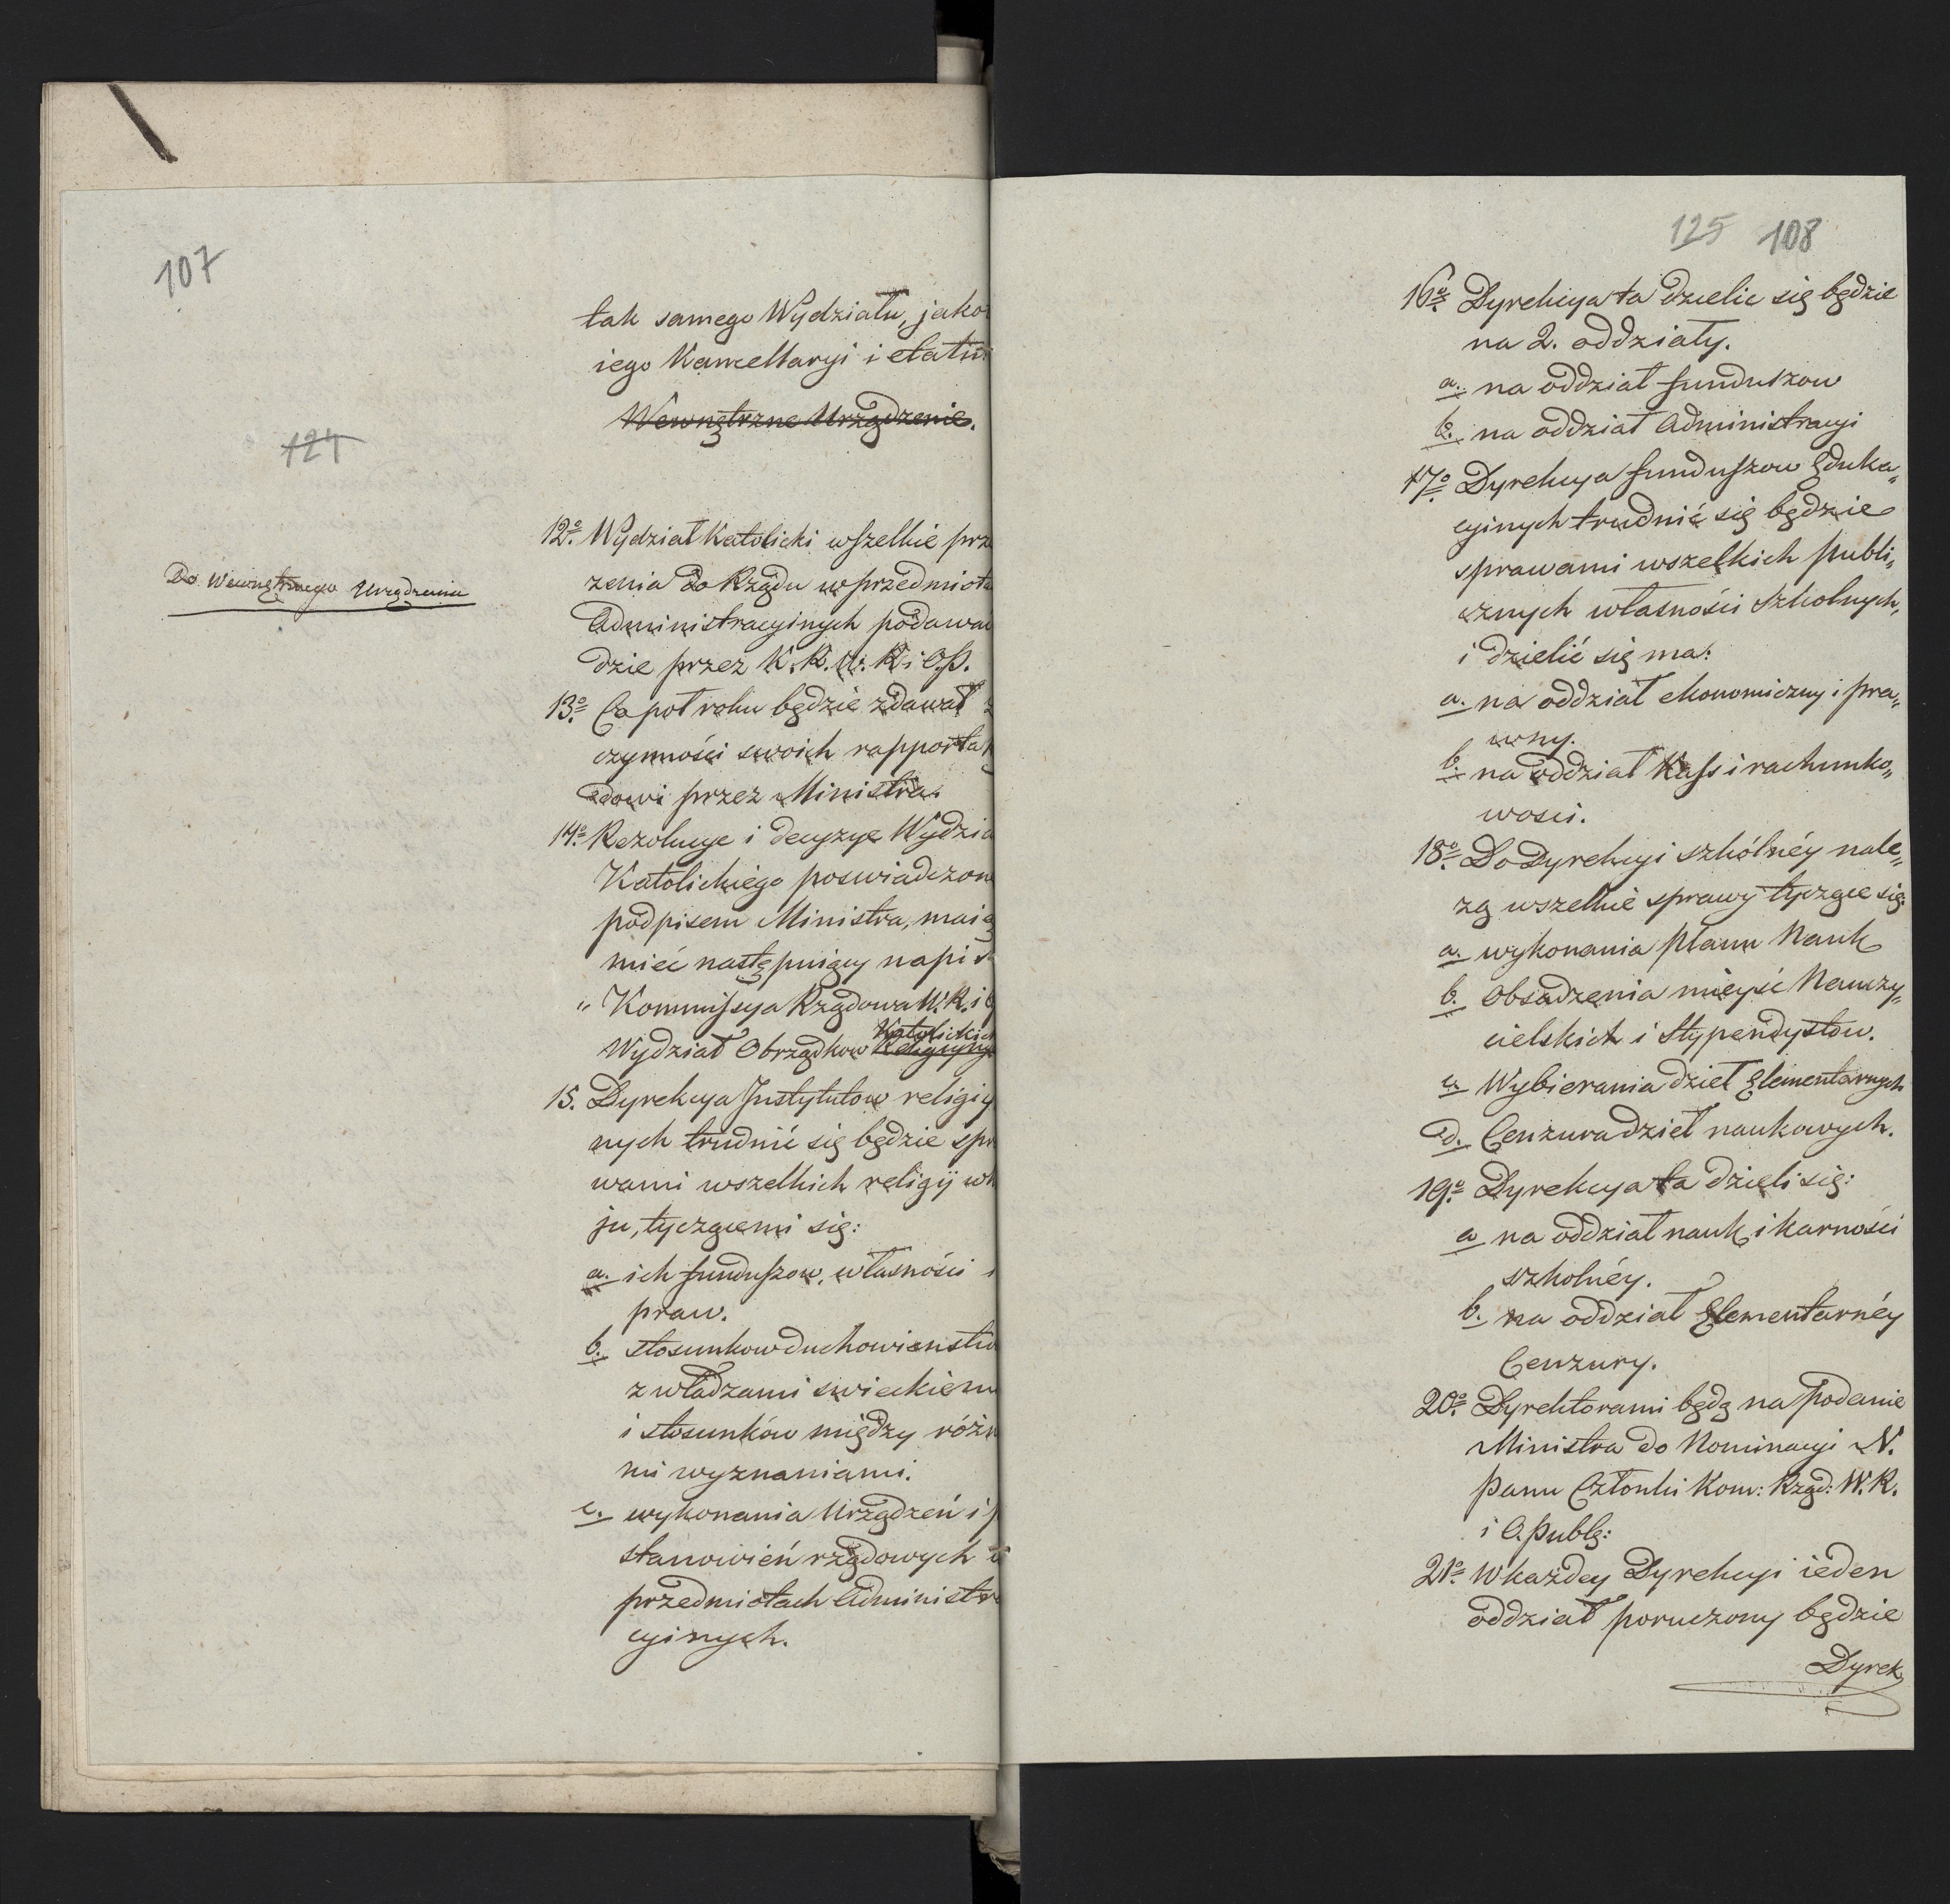 107
tak samego Wydziału, jako
iego Kancellaryi i etatu
Wewnętrzne Urządzenie.
124
Do Wewnętrznego Urządzenia
12o. Wydział Katolicki wszelkie prz
zenia do Rządu w przedmiota
Administracyinych podawa
dzie przez K. R. W. R. i O. P.
13o. Co pół roku będzie zdawał
czynności swoich rapporta
dowi przez Ministra.
14o. Rezolucye i decyzye Wydzia
Katolickiego poswiadczon
podpisem Ministra, maią
mieć następuiący napis
" Kommissya Rządowa W. R. i
Katolickich
Wydział Obrządkow Religiyny
15. Dyrekcya Instytutow religiy
nych trudnić się będzie spr
wami wszelkich religij w k
ju, tyczącemi się:
a. ich funduszow, własności i
praw.
b. stosunkow duchowienstw
z władzami swieckiem
i stosunków między różn
mi wyznaniami.
c. wykonania Urządzeń i p
stanowień rządowych w
przedmiotach Administra
cyinych.
125 108
16o. Dyrekcya ta dzielic się będzie
na 2. oddziały.
a. na oddział funduszow
b. na oddział Administracyi
17o. Dyrekcya funduszow Eduka„
cyinych trudnić się będzie
sprawami wszelkich publi„
cznych własności szkolnych,
i dzielić się ma:
a. na oddział ekonomiczny i pra„
wny.
b. na oddział Kass i rachunko„
wosci.
18o. Do Dyrekcyi szkólnéy nale„
zą wszelkie sprawy tyczące się:
a. wykonania planu Nauk
b. Obsadzenia mieysc Nauczy„
cielskich i Stypendystow.
c. Wybierania dzieł Elementarnych
d. Cenzura dzieł naukowych.
19o. Dyrekcya ta dzieli się:
a na oddział nauk i karności
szkolnéy.
b. na oddział Elementarnéy
Cenzury.
20o. Dyrektorami będą na podanie
Ministra do Nominacyi N.
Panu Członki Kom: Rząd: W. R.
i O. Publ:
21o. W kazdey Dyrekcyi ieden
oddział poruczony będzie
Dyrek„